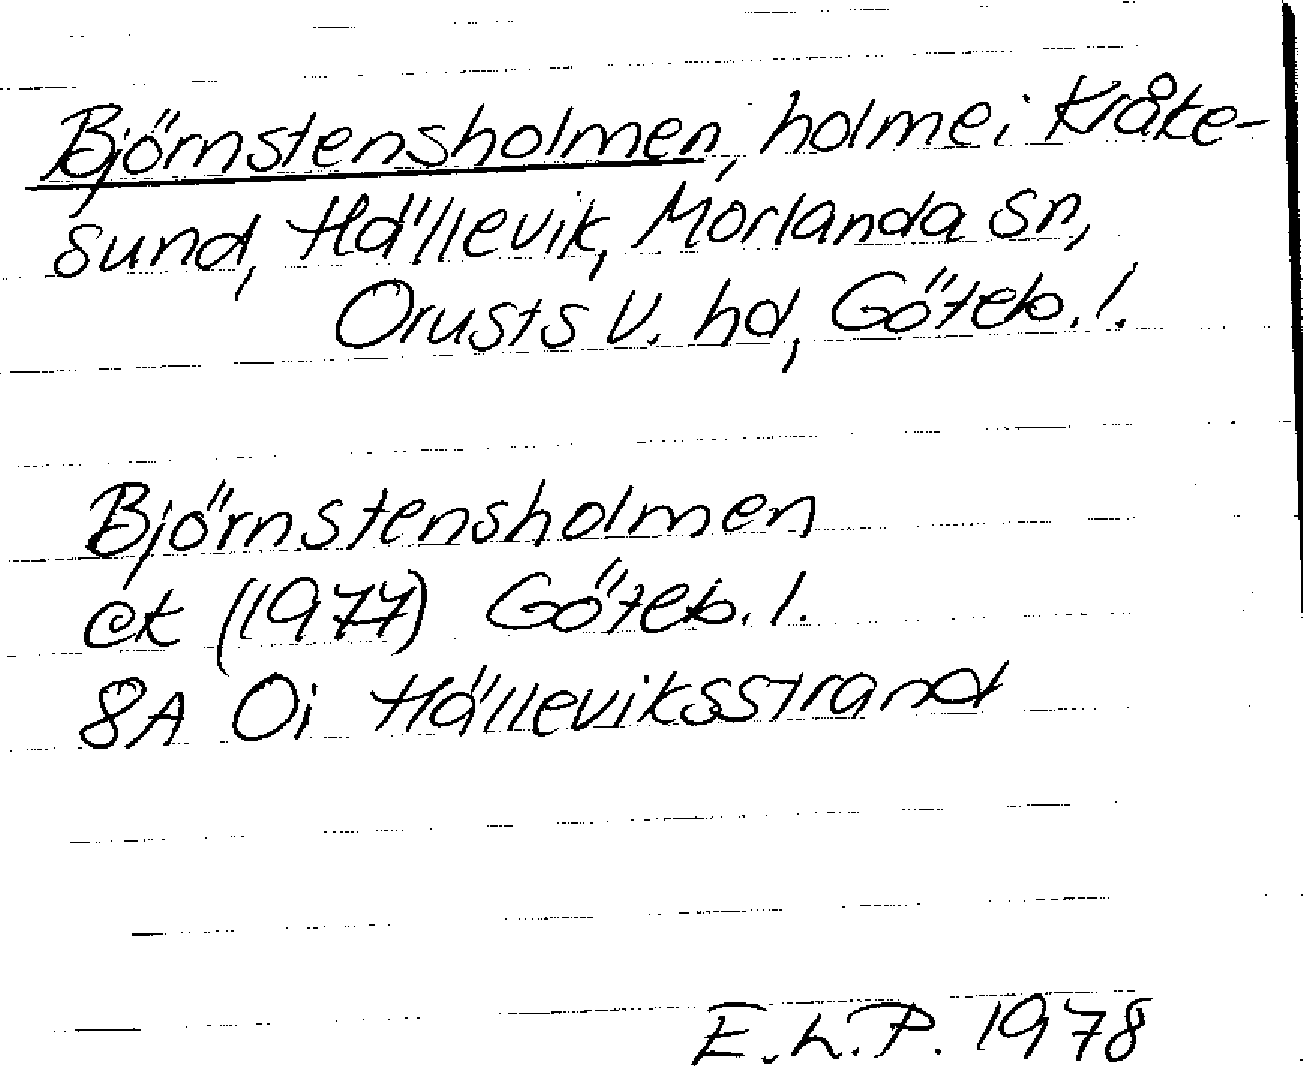 Björnstensholmen, holme i Kråke-
sund, Hällevik, Morlanda sn,
Orusts V. hd, Göteb. l.
Björnstensholmen
ek (1977) Göteb. l.
8A 0i Hälleviksstrand
E.L.P. 1978